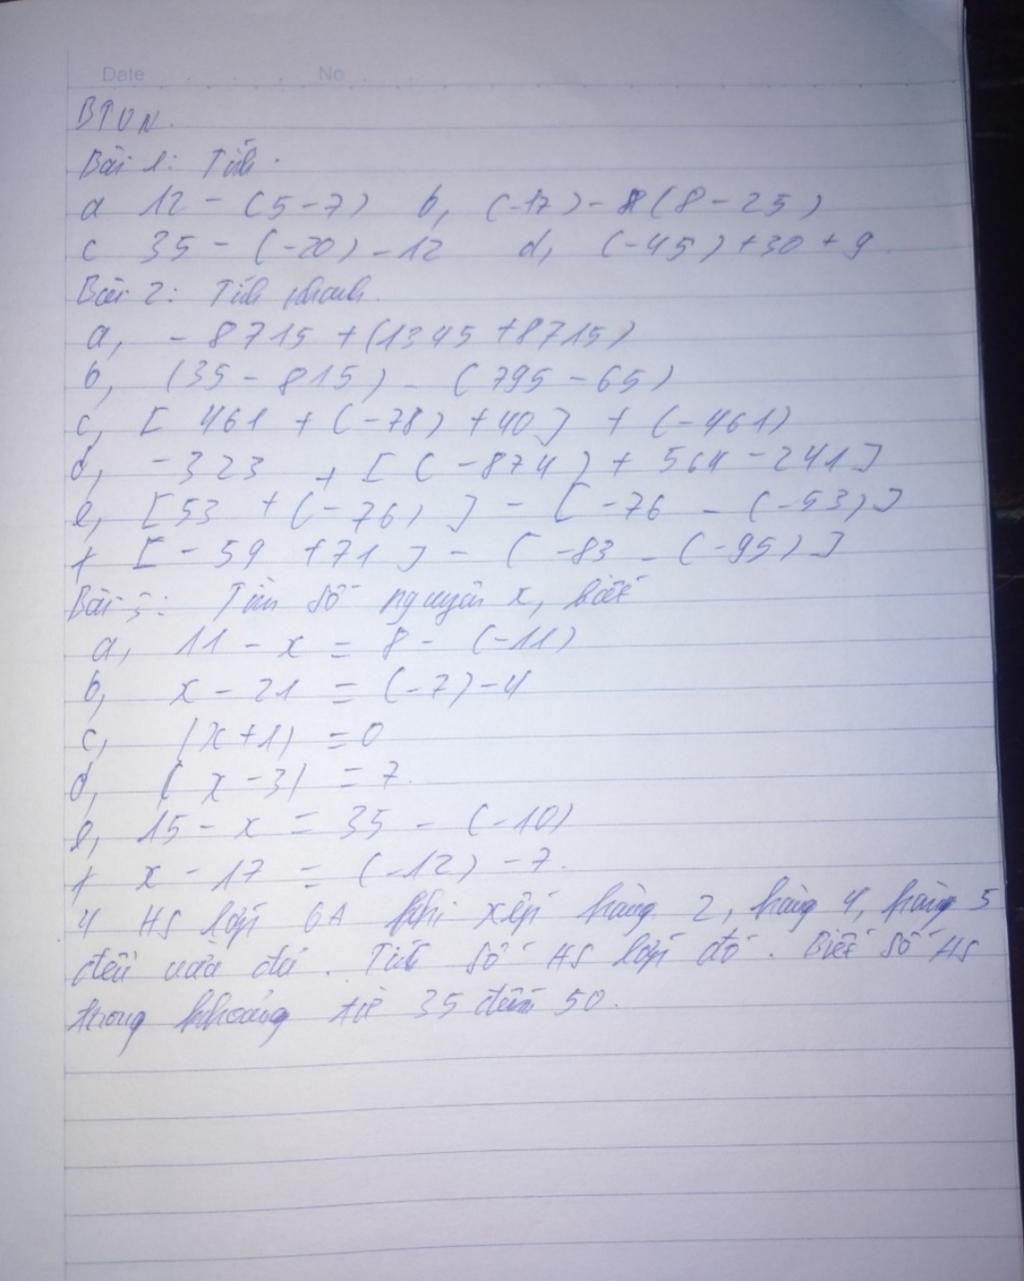 Date No
BTVN.
Bài 1: Tính.
a 12 - (5-7) b, (-17) - (8-25)
c 35 - (-20) - 12 d, (-45) + 30 + 9.
Bài 2: Tính nhanh.
a, - 8715 + (1345 + 8715)
b, (35 - 815) - (795 - 65)
c, [ 461 + (-78) + 40] + (-461)
d, - 323 + [ ( -874 ) + 564 - 241 ]
e, [53 + (-76) ] - [ -76 - (-53) ]
f [ - 59 + 71 ] - ( -83 - (-95) ]
Bài 3: Tìm số nguyên x, biết
a, 11 - x = 8 - (-11)
b, x - 21 = (-7) - 4
c, |x+1| = 0
d, | x - 3| = 7.
e, 15 - x = 35 - (-10)
f x - 17 = (-12) - 7.
4 HS lớp 6A khi xếp hàng 2, hàng 4, hàng 5
đều vừa đủ. Tính số HS lớp đó. Biết số HS
trong khoảng từ 35 đến 50.